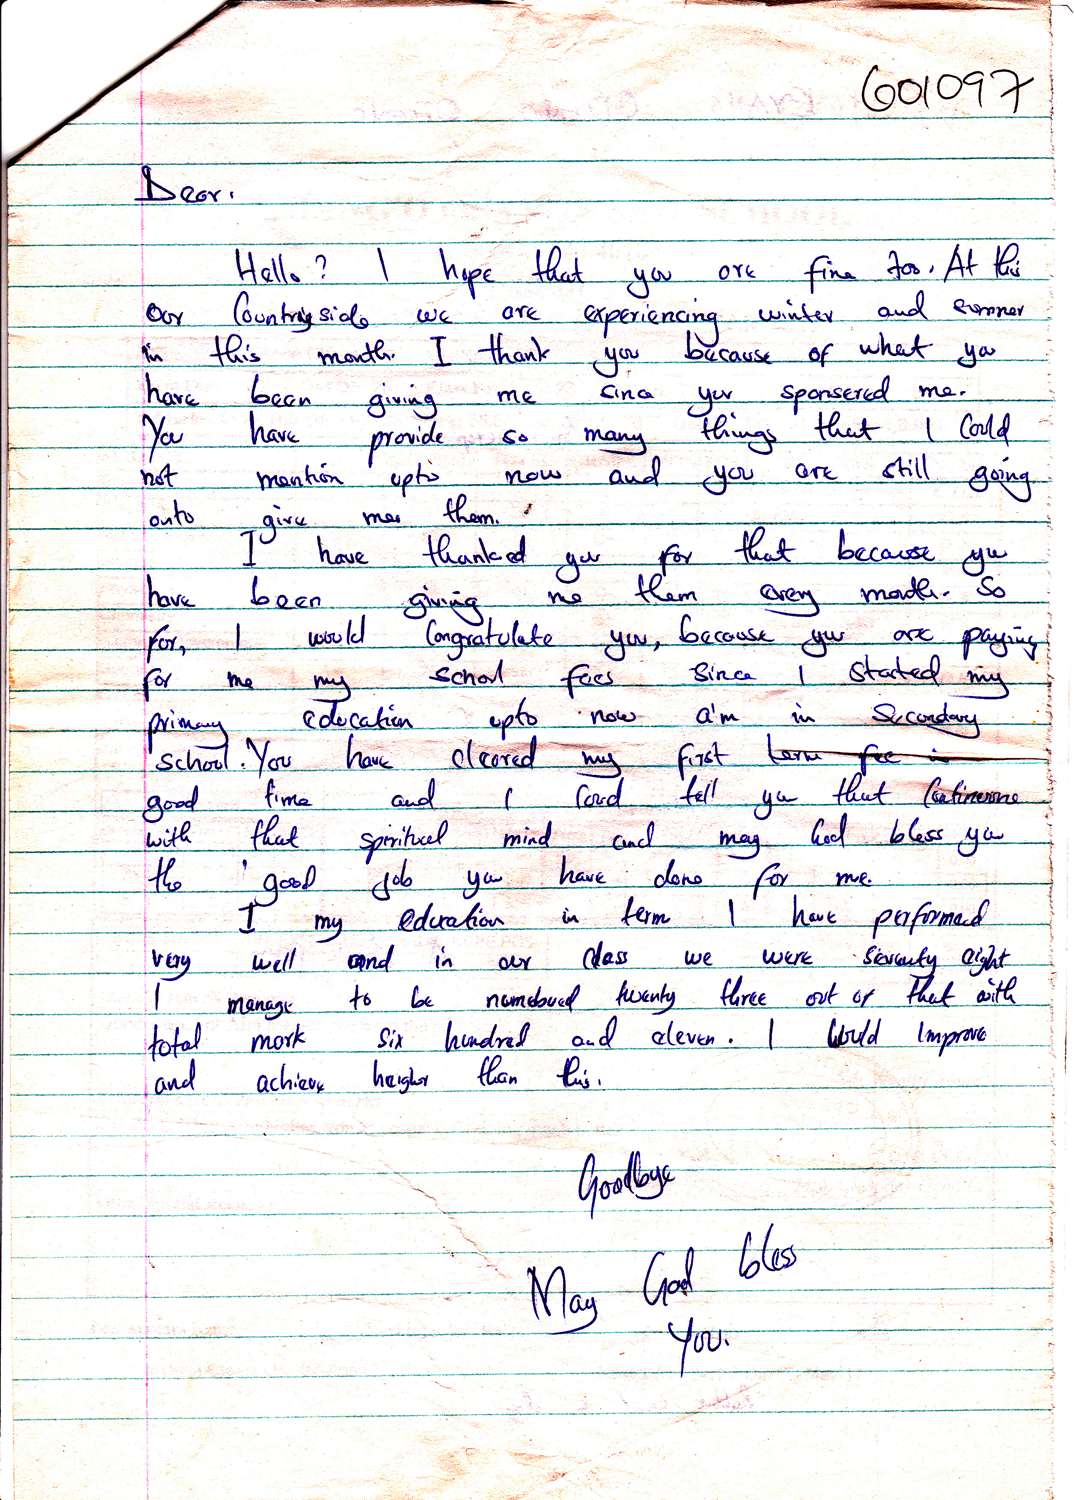 601097
Dear.
Hello? I hope that you are fine too. At this
our Countryside we are experiencing winter and summer
in this month. I thank you because of what you
have been giving me since you sponsered me.
You have provide so many things that I Could
not mention upto now and you are still going
onto give me them.
I have thanked you for that because you
have been giving me them every month. So
for, I would Congratulate you, because you are paying
for me my school fees since I started my
primary education upto now a'm in Secondary
school. You have cleared my first term fee in
good time and I Coud tell you that Continuone
with that spiritual mind and may God bless you
the good job you have done for me.
I my education in term I have performed
very well and in our class we were seventy eight
I manage to be numebured twenty three out of that with
total mark six hundred and eleven. I Would Improve
and achieve heigher than this.
Goodbye
May God bless
You.